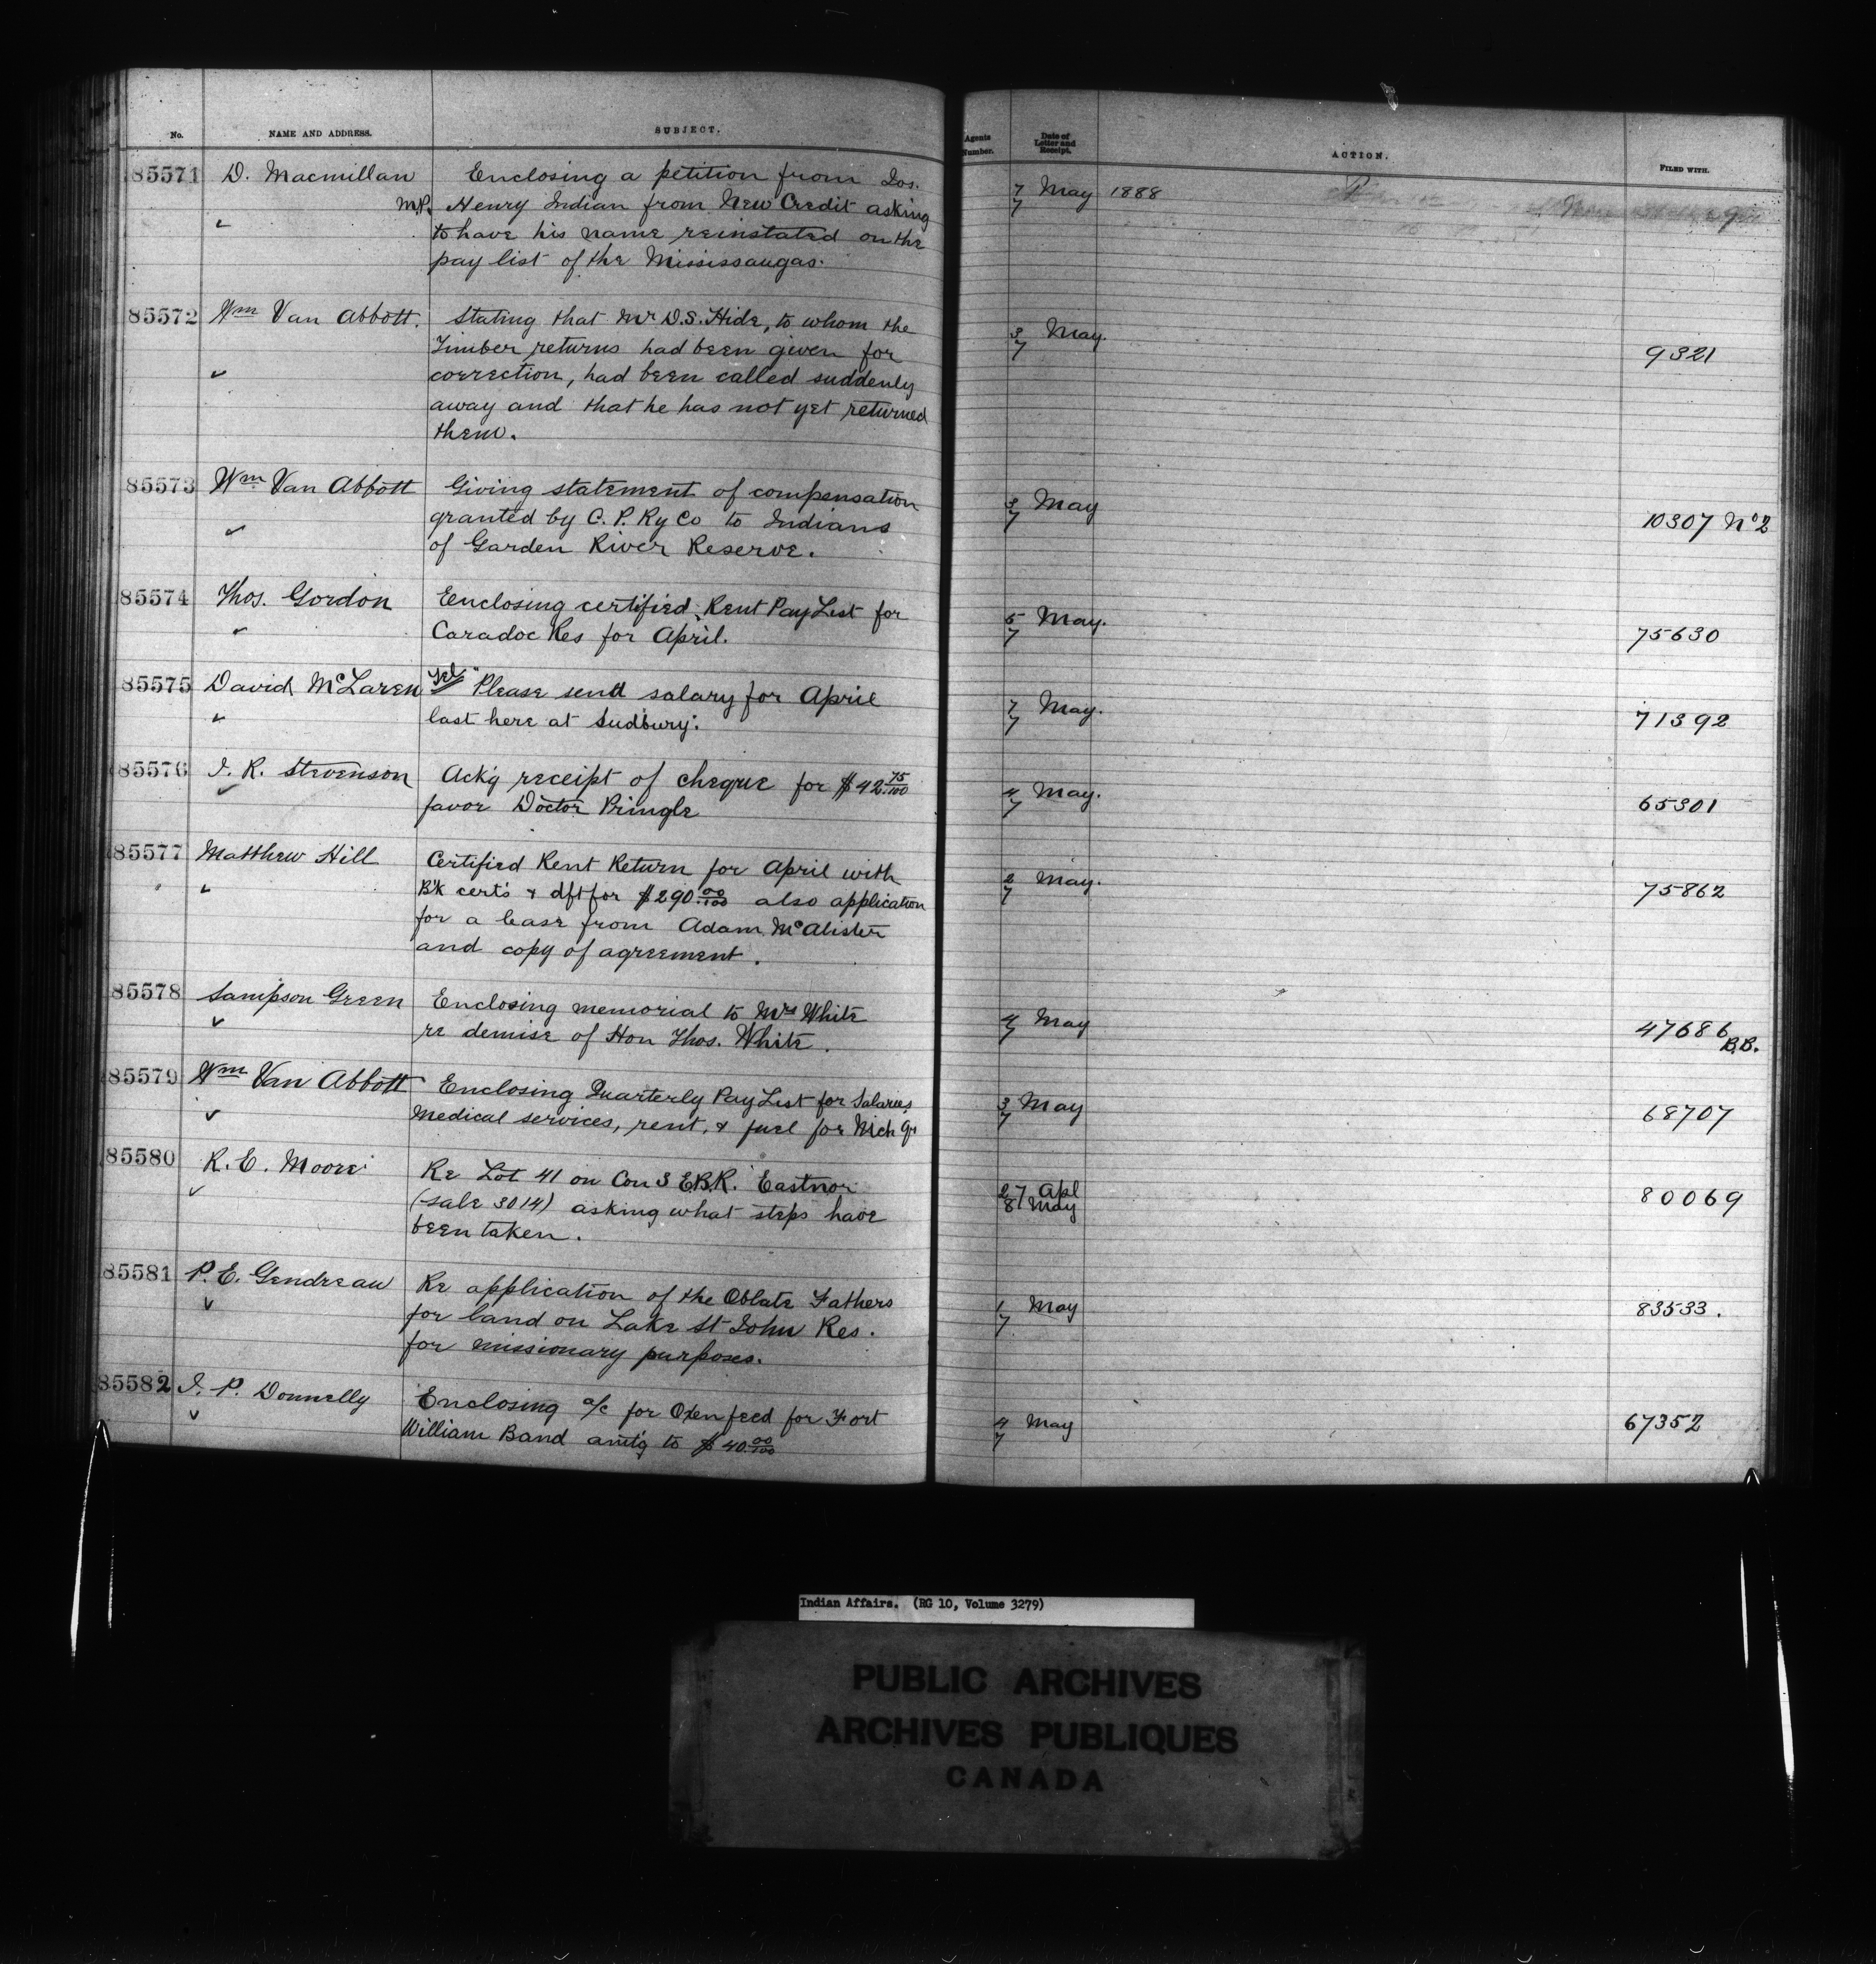 No. NAME AND ADDRESS. SUBJECT.
85571 D. Macmillan Enclosing a petition from Jos.
M.P. Henry Indian from New Credit asking
to have his name reinstated on the
pay list of the Mississaugas.
85572 Wm Van Abbott. Stating that Mr D.S. Hide, to whom the
Timber returns had been given for
correction, had been called suddenly
away and that he has not yet returned
them.
85573 Wm Van Abbott Giving statement of compensation
granted by C. P. Ry Co to Indians
of Garden River Reserve.
85574 Thos. Gordon Enclosing certified Rent Pay List for
Caradoc Res for April.
85575 David McLaren Tel "Please send salary for April
last here at Sudbury."
85576 J. R. Stevenson Ack'g receipt of cheque for $42.75/100
favor Doctor Pringle
85577 Matthew Hill Certified Rent Return for April with
B'k cert's + dft for $290.00/100 also application
for a lease from Adam McAlister
and copy of agreement.
85578 Sampson Green Enclosing memorial to Mrs White
re demise of Hon Thos. White.
85579 Wm Van Abbott Enclosing Quarterly Pay List for Salaries,
Medical services, rent, & fuel for Mich Gn
85580 R. E. Moore Re Lot 41 on Con 3 E.B.R. Eastnor
(sale 3014) asking what steps have
been taken.
85581 P. E. Gendreau Re application of the Oblate Fathers
for land on Lake St John Res.
for missionary purposes.
85582 J. P. Donnelly Enclosing a/c for Oxen feed for Fort
William Band amt'g to $40.00/100
Agents Number. Date of Letter and Receipt. ACTION. FILED WITH.
7/7 May 1888
3/7 May. 9321
3/7 May 10307 No 2
5/7 May. 75630
7/7 May. 71392
4/7 May. 65301
2/7 May. 75862
4/7 May 47686 B.B.
3/7 May 68707
27 Apl
8 May 80069
1/7 May 83533.
4/7 May 67352
Indian Affairs. (RG 10, Volume 3279)
PUBLIC ARCHIVES
ARCHIVES PUBLIQUES
CANADA